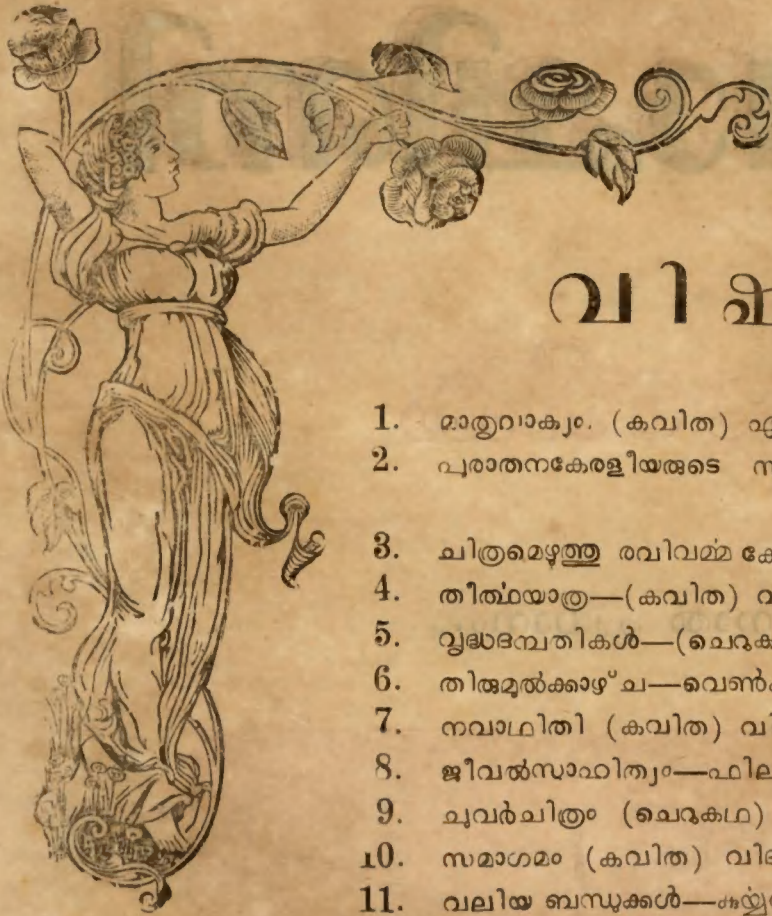 വിഷ
1. മാതൃവാക്യം. (കവിത) എ
2. പുരാതനകേരളീയരുടെ സ
3. ചിത്രമെഴുത്തു രവിവൎമ്മ കേ
4. തീൎത്ഥയാത്ര—(കവിത) വ
5. വൃദ്ധദമ്പതികൾ—(ചെറുക
6. തിരുമുൽക്കാഴ്ച—വെൺ
7. നവാഥിതി (കവിത) വി
8. ജീവൽസാഹിത്യം—ഫില
9. ചുവർചിത്രം (ചെറുകഥ)
10. സമാഗമം (കവിത) വിദ
11. വലിയ ബന്ധുക്കൾ—